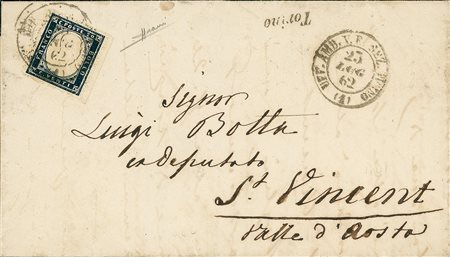 Torino
UFF. AMB.
23
LUG
62
(1)
FRANCO
Signor
Luigi Botta
ex deputato
St. Vincent
Valle d'Aosta